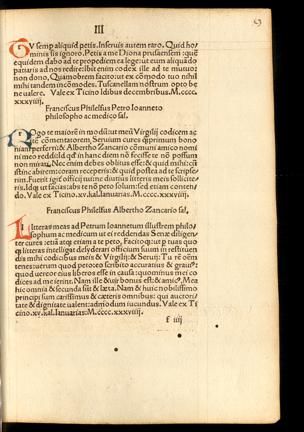 III
63
QV semp aliquid petis. Inseruis autem raro. Quid ho/
minis sis ignoro. Petis a me Diona prusaensem: quē
equidem dabo ad te propediem ea lege: ut eum aliquādo
patiaris ad nos redire: ibit enim codex ille ad te mutuo:
non dono, Quamobrem facito: ut ex cōmodo tuo nihil
mihi tandem incōmodes. Tuscanellam nostrum opto be
ne ualere. Vale ex Ticino Idibus decembribus. M.cccc.
xxxviiij.
Franciscus Philelfus Petro Ioanneto
philosopho ac medico sal.
ROgo te maiorē in modū: ut meū Virgilij codicem ac
ite cōmentatorem Seruium cures q̄primum bono
niam perferri: & Albertho Zancario cōmuni amico nomi
ni meo reddi. Id qd̄ in hanc diem nō fecisse te nō possum
non mirari. Nec enim debes oblitus esse: & quid mihi cū
istinc abirem: coram receperis: & quid postea ad te scripse
rim. Fuerit igit̄ officij tui: ne diutius litteris meis sollicite
ris. Id qd̄ ut facias: abs te nō peto solum: sed etiam conten
do. Vale ex Ticino. xv. kal. Ianuarias. M.cccc.xxxviiij.
Franciscus Philelfus Albertho Zancario sal.
LItteras meas ad Petrum Ioannetum illustrem philo/
sophum ac medicum ut ei reddendas
ter cures: etiā atq; etiam a te peto, Facitoq;: ut p tuas quo
q; litteras intelligat: desyderari officium suum in restituen
dis mihi codicibus meis & Virgilij: & Seruij: Tu rē oēm
tenes: utrum quod peto
quod uereor eius libros esse in causa: quominus mei co
dices ad me ierint. Nam ille & uir bonus est: & amic. Me
hic omnia & secunda sūt & læta. Nam & huic nobilissimo
principi sum carissimus & cæteris omnibus: qui auctori/
tate & dignitate ualent: admodum iucundus. Vale ex Ti
cino. xv. kal. Ianuarias: M.cccc.xxxviiij.
f iiij